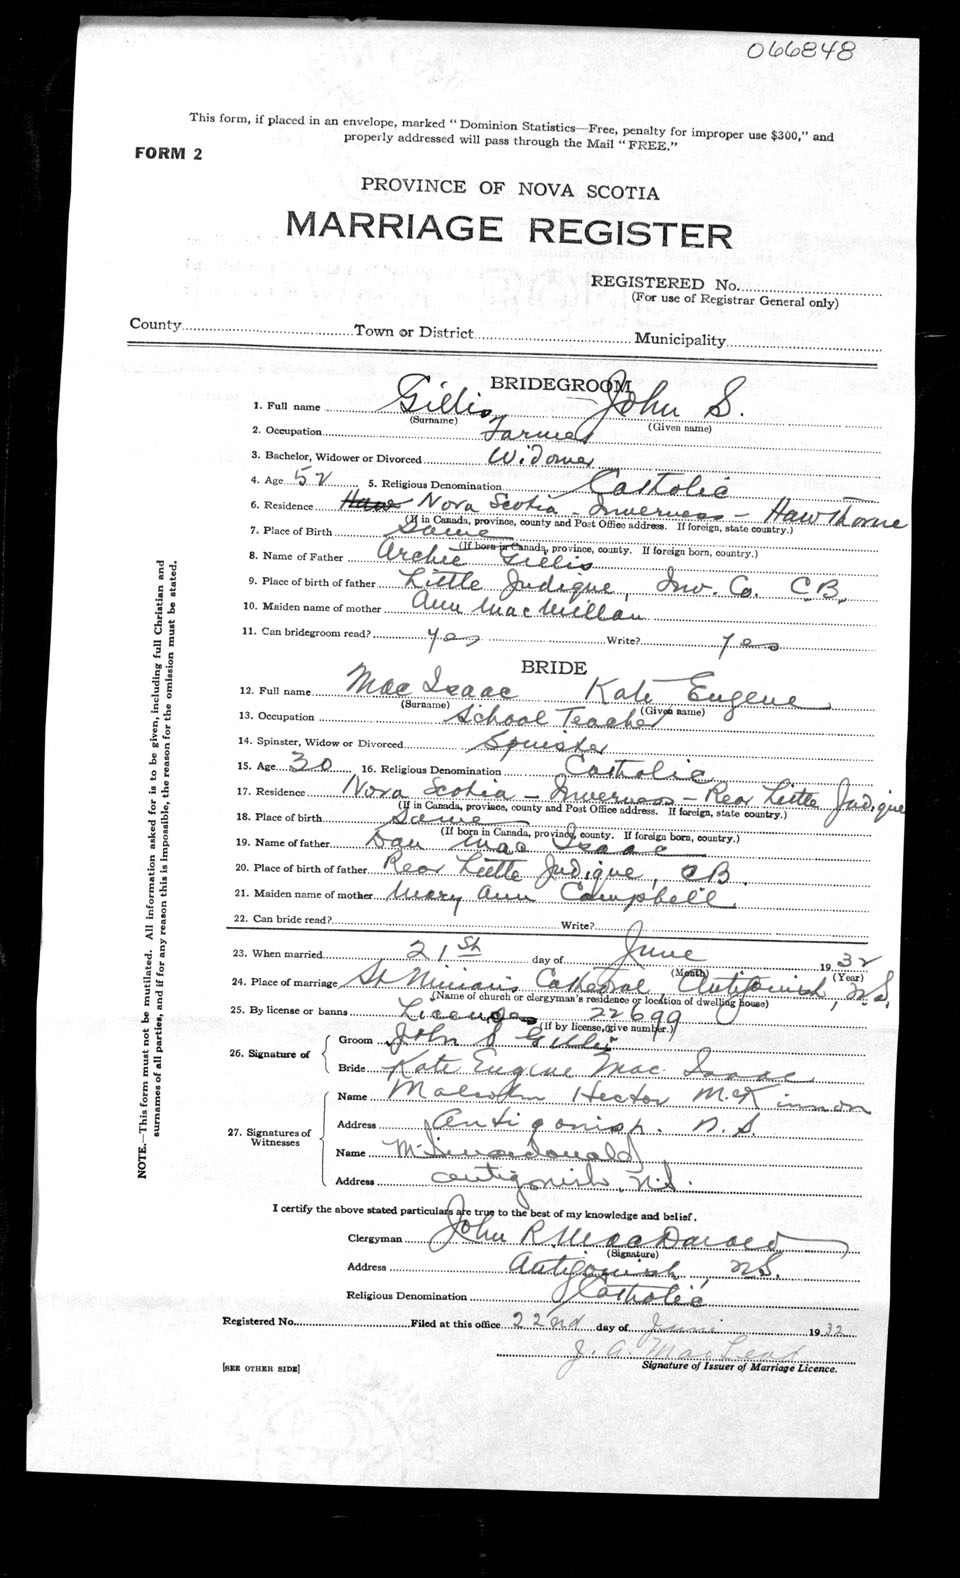 066848
This form, if placed in an envelope, marked “Dominion Statistics—Free, penalty for improper use $300,” and
properly addressed will pass through the Mail “FREE.”
FORM 2
PROVINCE OF NOVA SCOTIA
MARRIAGE REGISTER
REGISTERED No.
(For use of Registrar General only)
County Town or District Municipality
BRIDEGROOM
1. Full name Gillis John S.
(Surname) (Given name)
2. Occupation Farmer
3. Bachelor, Widower or Divorced Widower
4. Age 52 5. Religious Denomination Catholic
6. Residence Nova Scotia - Inverness - Hawthorne
(If in Canada, province, county and Post Office address. If foreign, state country.)
7. Place of Birth Same
(If born in Canada, province, county. If foreign born, country.)
8. Name of Father Archie Gillis
9. Place of birth of father Little Judique, Inv. Co. C.B.
10. Maiden name of mother Ann MacMillan
11. Can bridegroom read? yes Write? yes
BRIDE
12. Full name MacIsaac Kate Eugene
(Surname) (Given name)
13. Occupation School Teacher
14. Spinster, Widow or Divorced Spinster
15. Age 30 16. Religious Denomination Catholic
17. Residence Nova Scotia - Inverness - Rear Little Judique
(If in Canada, province, county and Post Office address. If foreign, state country.)
18. Place of birth Same
(If born in Canada, province, county. If foreign born, country.)
19. Name of father Dan MacIsaac
20. Place of birth of father Rear Little Judique, C.B.
21. Maiden name of mother Mary Ann Campbell
22. Can bride read? Write?
23. When married 21st day of June 1932
(Month) (Year)
24. Place of marriage St Ninian's Cathedral, Antigonish, N.S.
(Name of church or clergyman's residence or location of dwelling house)
25. By license or banns License 22699
(If by license, give number.)
26. Signature of Groom John S Gillis
Bride Kate Eugene MacIsaac
27. Signatures of Witnesses Name Malcolm Hector McKinnon
Address Antigonish. N.S.
Name
Address Antigonish, N.S.
I certify the above stated particulars are true to the best of my knowledge and belief.
Clergyman John R. MacDonald
(Signature)
Address Antigonish, N.S.
Religious Denomination Catholic
Registered No. Filed at this office 22nd day of June 1932
J. A. MacLeod
[SEE OTHER SIDE] Signature of Issuer of Marriage Licence.
NOTE.—This form must not be mutilated. All information asked for is to be given, including full Christian and
surnames of all parties, and if for any reason this is impossible, the reason for the omission must be stated.